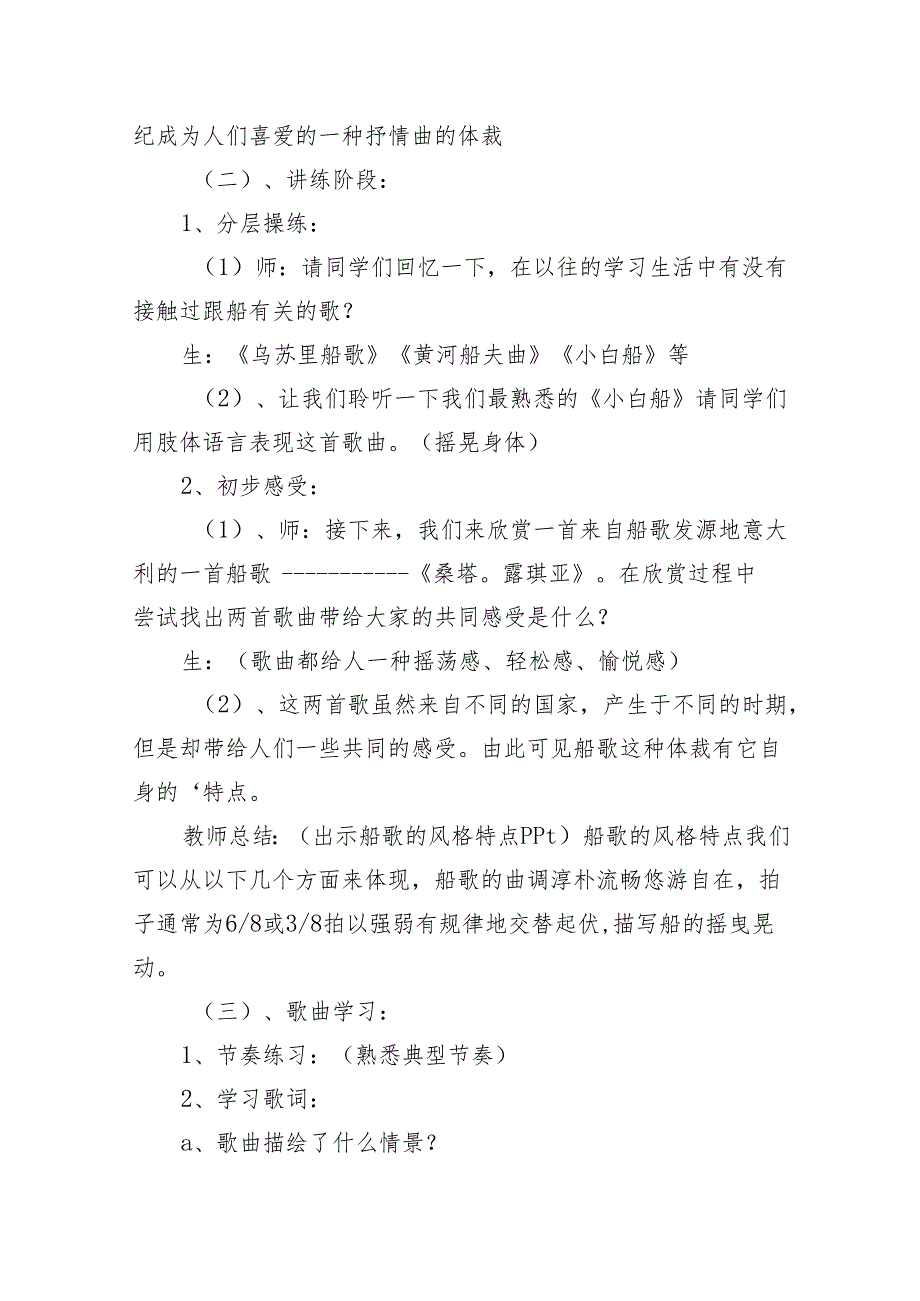 纪成为人们喜爱的一种抒情曲的体裁
（二）、讲练阶段：
1、分层操练：
（1）师：请同学们回忆一下，在以往的学习生活中有没有
接触过跟船有关的歌？
生：《乌苏里船歌》《黄河船夫曲》《小白船》等
（2）、让我们聆听一下我们最熟悉的《小白船》请同学们
用肢体语言表现这首歌曲。（摇晃身体）
2、初步感受：
（1）、师：接下来，我们来欣赏一首来自船歌发源地意大
利的一首船歌 -----------《桑塔。露琪亚》。在欣赏过程中
尝试找出两首歌曲带给大家的共同感受是什么？
生：（歌曲都给人一种摇荡感、轻松感、愉悦感）
（2）、这两首歌虽然来自不同的国家，产生于不同的时期，
但是却带给人们一些共同的感受。由此可见船歌这种体裁有它自
身的‘特点。
教师总结：（出示船歌的风格特点PPt）船歌的风格特点我们
可以从以下几个方面来体现，船歌的曲调淳朴流畅悠游自在，拍
子通常为6/8或3/8拍以强弱有规律地交替起伏,描写船的摇曳晃
动。
（三）、歌曲学习：
1、节奏练习：（熟悉典型节奏）
2、学习歌词：
a、歌曲描绘了什么情景？